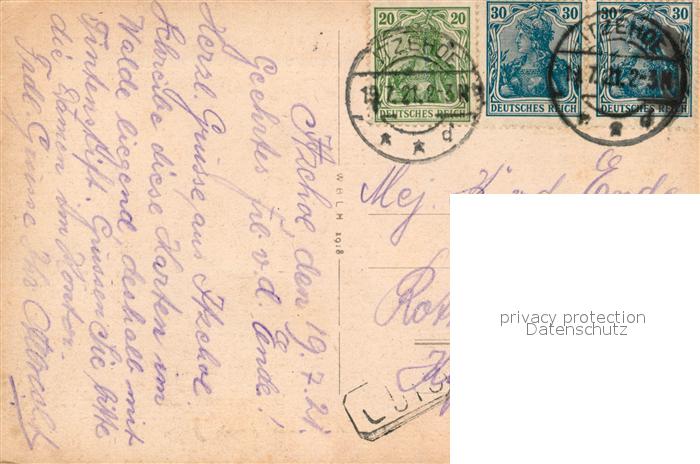 20
30
30
DEUTSCHES REICH
DEUTSCHES REICH
DEUTSCHES REICH
ITZEHOE
19.7.21. 2-3 N
* * d
ITZEHOE
19.7.21. 2-3 N
* * d
Itzehoe den 19.7.21.
Geehrtes frl. v. d. Ende!
Herzl. Grüsse aus Itzehoe.
Schreibe diese Karten im
Walde liegend, deshalb mit
Tintenstift. Grüssen Sie bitte
die Damen im Kontor.
Frdl. Grüsse Ihr
W B L M 1918
Mej. v. d. Ende
Rott
privacy protection
Datenschutz